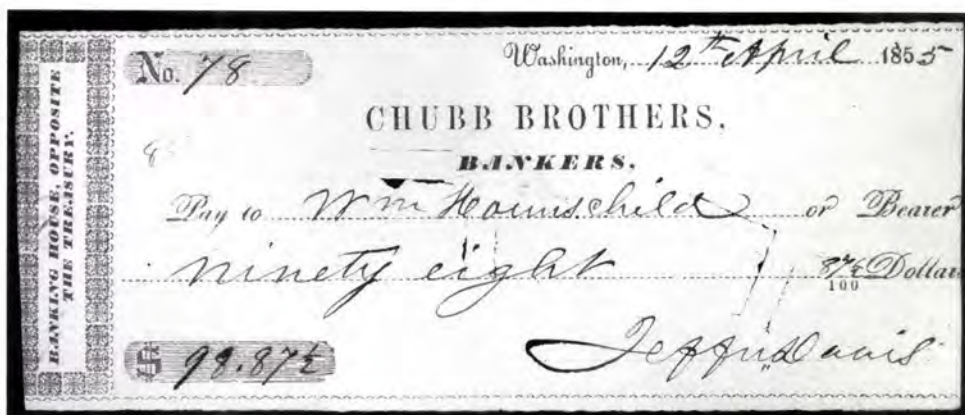 BANKING HOUSE, OPPOSITE
THE TREASURY.
No. 78
Washington, 12th April 1855
CHUBB BROTHERS,
BANKERS.
Pay to Wm Hounschild or Bearer
ninety eight 87½/100 Dollars
$ 98.87½
Jeffn Davis